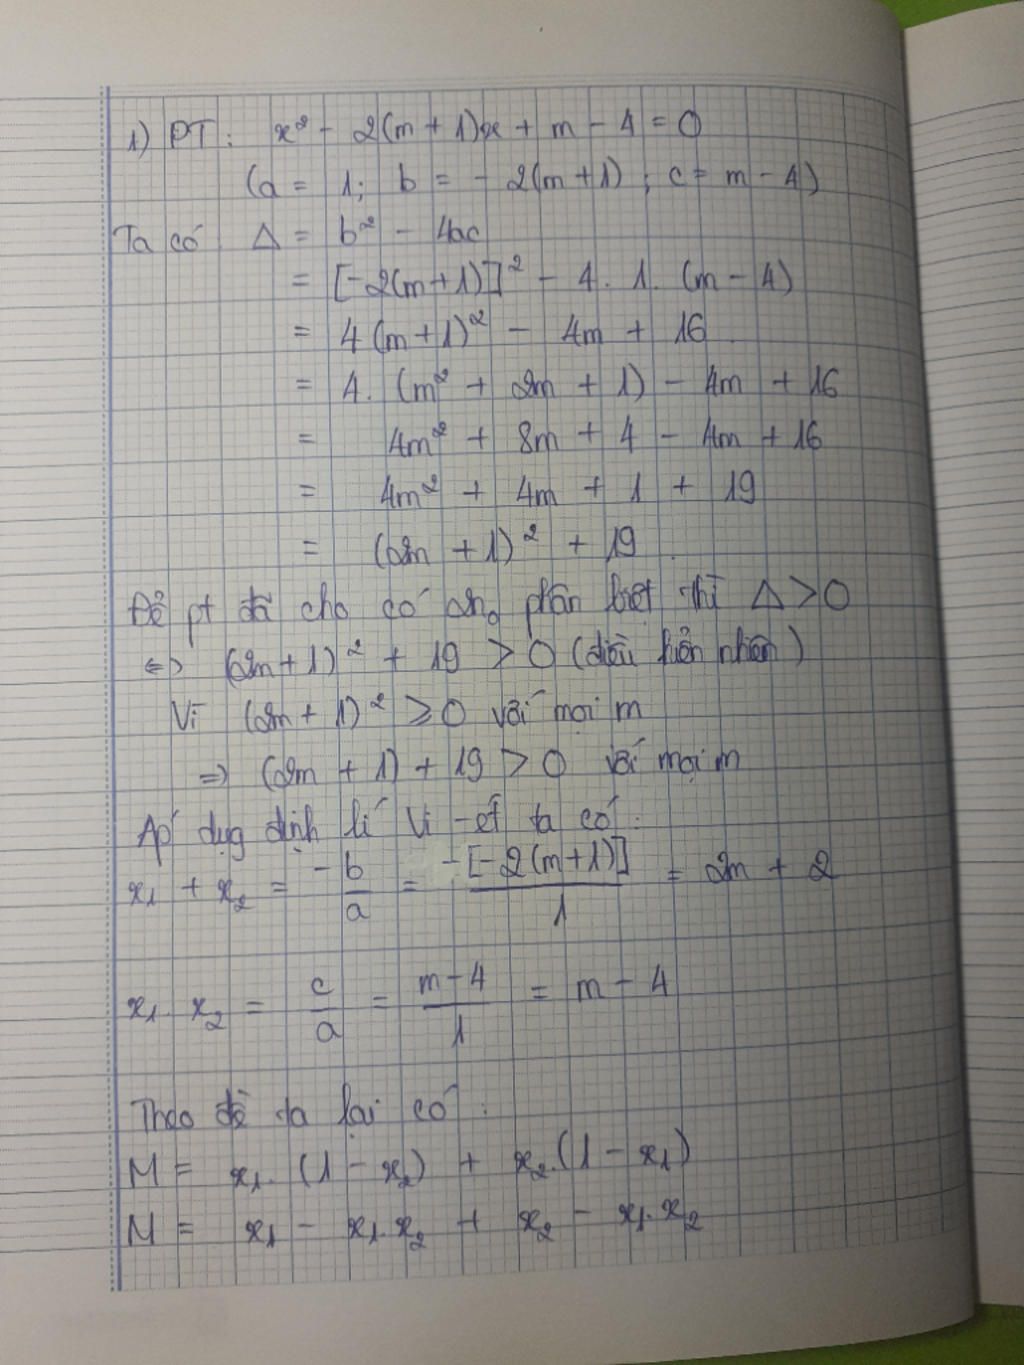 1) PT: x² - 2(m + 1)x + m - 4 = 0
(a = 1; b = - 2(m+1) ; c = m - 4)
Ta có Δ = b² - 4ac
= [-2(m+1)]² - 4. 1. (m - 4)
= 4(m+1)² - 4m + 16
= 4. (m² + 2m + 1) - 4m + 16
= 4m² + 8m + 4 - 4m + 16
= 4m² + 4m + 1 + 19
= (2m + 1)² + 19
Để pt đã cho có 2n₀ phân biệt thì Δ > 0
<=> (2m+1)² + 19 > 0 (điều hiển nhiên)
Vì (2m + 1)² ≥ 0 với mọi m
=> (2m + 1) + 19 > 0 với mọi m
Áp dụg định lí Vi-ét ta có:
x₁ + x₂ = -b/a = -[-2(m+1)]/1 = 2m + 2
x₁. x₂ = c/a = m-4/1 = m - 4
Theo đề ta lại có:
M = x₁. (1 - x₂) + x₂.(1 - x₁)
M = x₁ - x₁.x₂ + x₂ - x₁.x₂